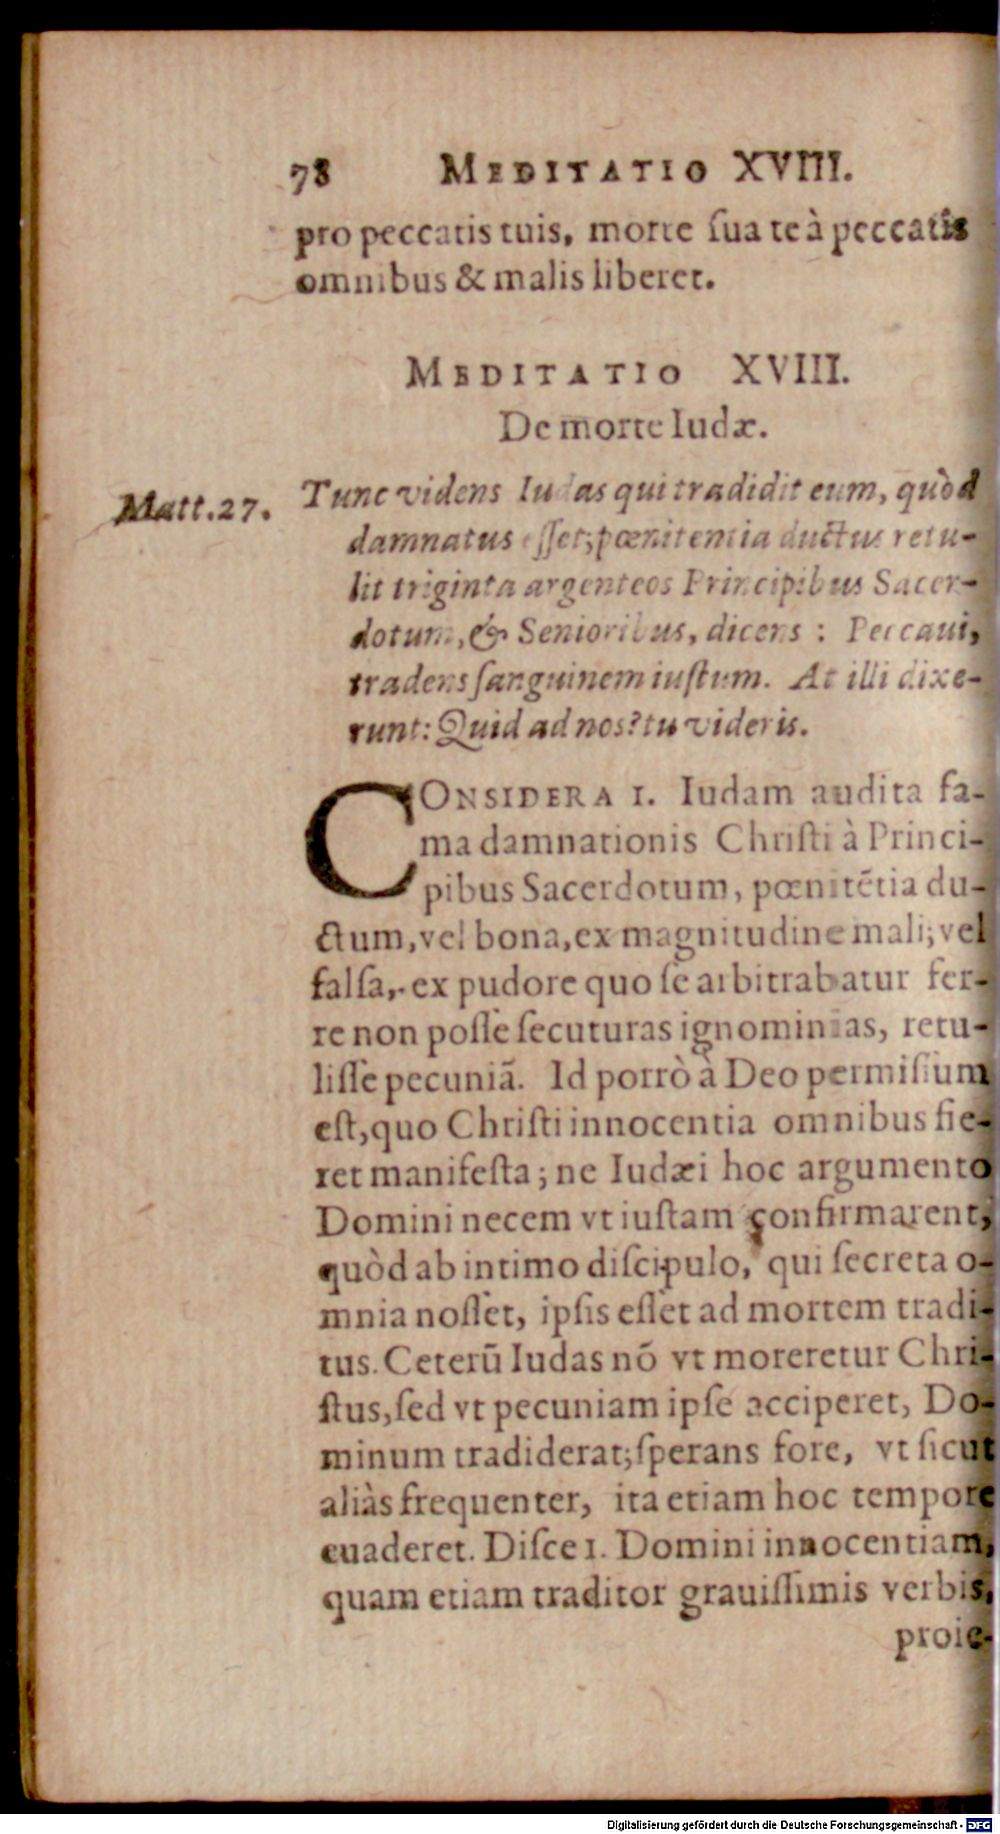 78 MEDITATIO XVIII.
pro peccatis tuis, morte ſua te à peccatis
omnibus & malis liberet.
MEDITATIO XVIII.
De morte Iudæ.
Matt.27. Tunc videns Iudas qui tradidit eum, quòd
damnatus eſſet; pœnitentia ductus retu-
lit triginta argenteos Principibus Sacer-
dotum, & Senioribus, dicens : Peccaui,
tradens ſanguinem iuſtum. At illi dixe-
runt: Quid ad nos? tu videris.
CONSIDERA 1. Iudam audita fa-
ma damnationis Chriſti à Princi-
pibus Sacerdotum, pœnitẽtia du-
ctum, vel bona, ex magnitudine mali; vel
falſa, ex pudore quo ſe arbitrabatur fer-
re non poſſe ſecuturas ignominias, retu-
liſſe pecuniã. Id porrò à Deo permiſſum
eſt, quo Chriſti innocentia omnibus fie-
ret manifeſta; ne Iudæi hoc argumento
Domini necem vt iuſtam confirmarent,
quòd ab intimo diſcipulo, qui ſecreta o-
mnia noſſet, ipſis eſſet ad mortem tradi-
tus. Ceterũ Iudas nõ vt moreretur Chri-
ſtus, ſed vt pecuniam ipſe acciperet, Do-
minum tradiderat; ſperans fore, vt ſicut
aliàs frequenter, ita etiam hoc tempore
euaderet. Diſce 1. Domini innocentiam,
quam etiam traditor grauiſſimis verbis,
proie-
Digitalisierung gefördert durch die Deutsche Forschungsgemeinschaft - DFG